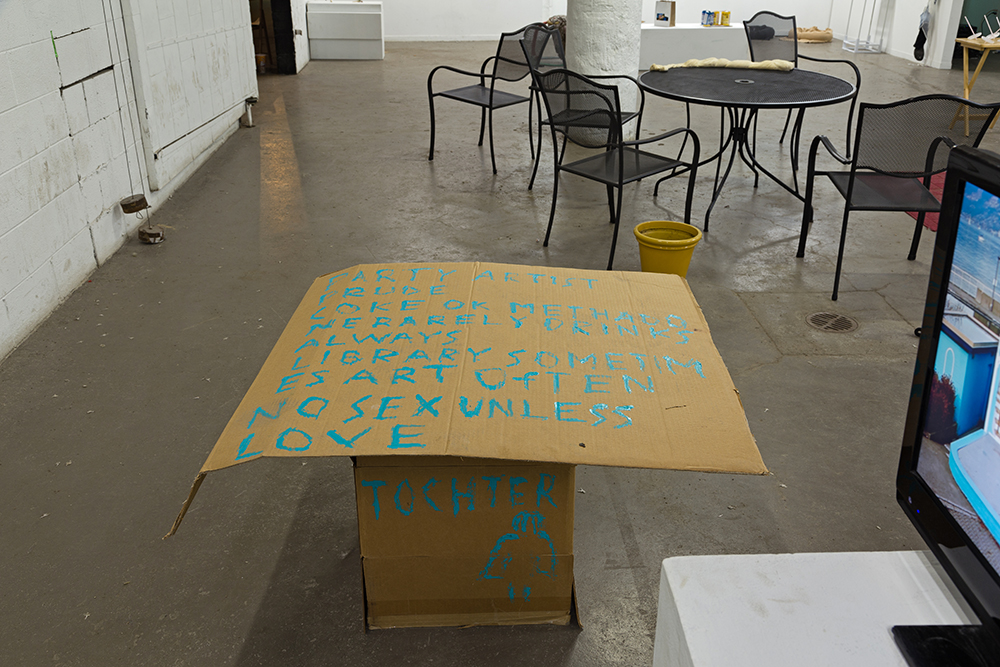 PARTY ARTIST
PRUDE
COKE OK METHADO
NE RARELY DRINKS
ALWAYS
LIBRARY SOMETIM
ES ART OFTEN
NO SEX UNLESS
LOVE
TOCHTER